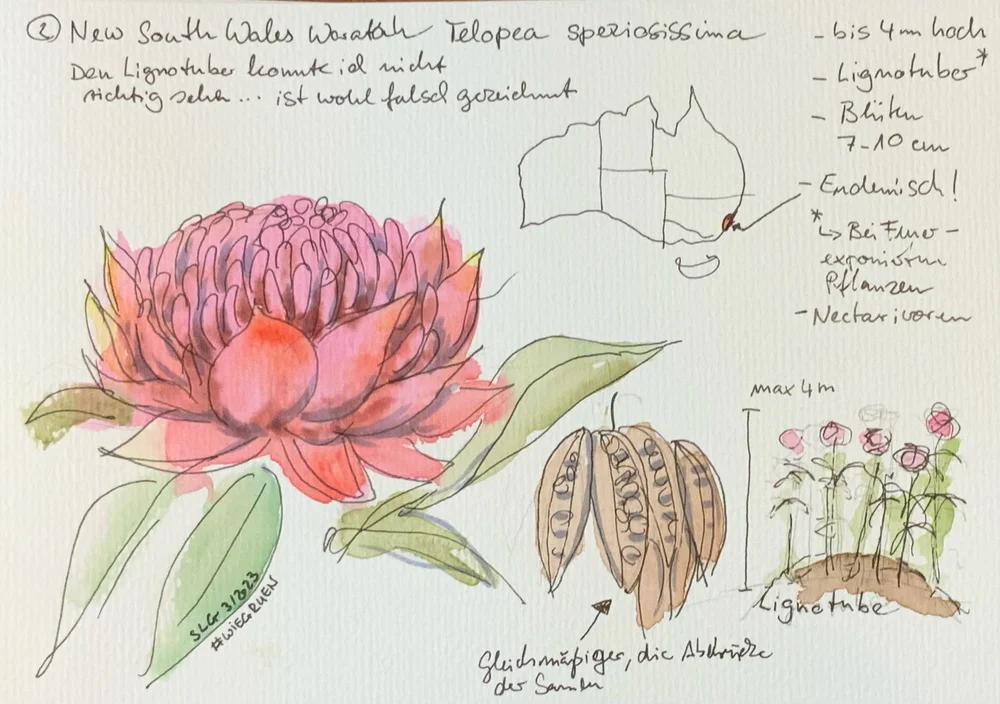 ② New South Wales Waratah Telopea speziosissima
Den Lignotuber konnte ich nicht
richtig sehen... ist wohl falsch gezeichnet
- bis 4m hoch
- Lignotuber*
- Blüten
7-10 cm
- Endemisch!
* ↳ Bei Feuer-
exponierten
Pflanzen
- Nectarivoren
max 4 m
Lignotube
SLG 3/2023
#WIEGRUEN
Gleichmäßiger, die Abdrücke
der Samen